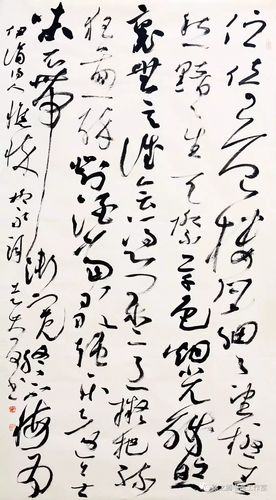 伫倚危楼风细细望极春
愁黯黯生天际草色烟光残照
里无言谁会凭阑意拟把疏
狂图一醉对酒当歌强乐还无
味衣带渐宽终不悔为
伊消得人憔悴 柳永词